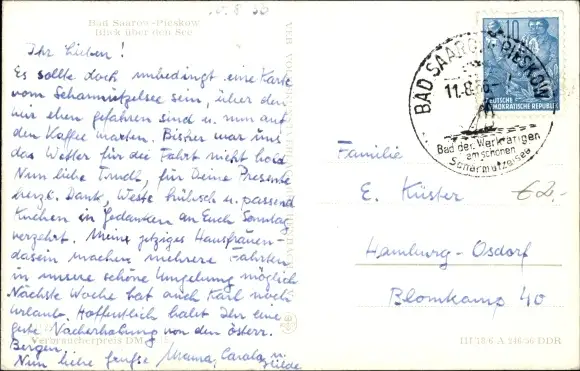 10.8.56
Bad Saarow-Pieskow
Blick über den See
Ihr Lieben!
Es sollte doch unbedingt eine Karte
vom Scharmützelsee sein, über den
wir eben gefahren sind u. nun auf
den Kaffee warten. Bisher war uns
das Wetter für die Fahrt nicht hold
Nun liebe Trudl, für Deine Presente
herzl. Dank, Weste hübsch u. passend
Kuchen in Gedanken an Euch Sonntag
verzehrt. Meine jetziges Hausfrauen-
dasein machen mehrere Fahrten
in unsere schöne Umgebung möglich
Nächste Woche hat auch Karl noch
Urlaub. Hoffentlich habt Ihr eine
gute Nacherholung von den österr.
Bergen.
Nun liebe Grüße Mama, Carola u.
Hilde
Verbraucherpreis DM
VEB
BAD SAAROW-PIESKOW
11.8.56
Bad der Werktätigen
am schönen
Scharmützelsee
10
DEUTSCHE
DEMOKRATISCHE REPUBLIK
Familie
E. Küster
€ 2,-
Hamburg-Osdorf
Blomkamp 40
III/18/6 A 246/56 DDR